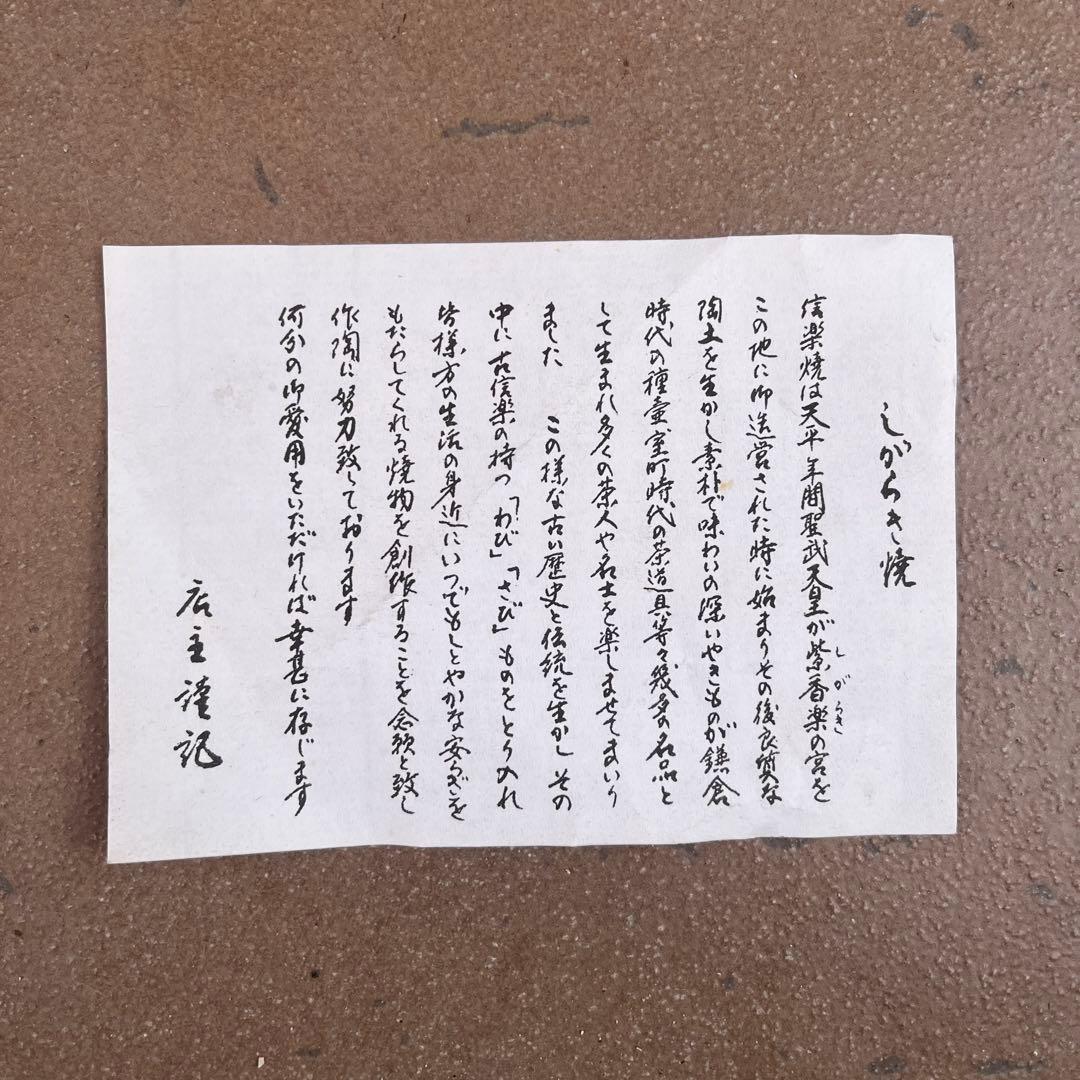 しがらき焼
信楽焼は天平年間聖武天皇が紫香楽の宮を
しがらき
この地に御造営された時に始まりその後良質な
陶土を生かし素朴で味わいの深いやきものが鎌倉
時代の種壷室町時代の茶道具等々幾多の名品と
して生まれ多くの茶人や名士を楽しませてまいり
ました　この様な古い歴史と伝統を生かし その
中に古信楽の持つ「わび」「さび」ものをとり入れ
皆様方の生活の身近にいつでもしとやかな安らぎを
もたらしてくれる焼物を創作することを念願と致し
作陶に努力致しております
何分の御愛用をいただければ幸甚に存じます
店主謹記